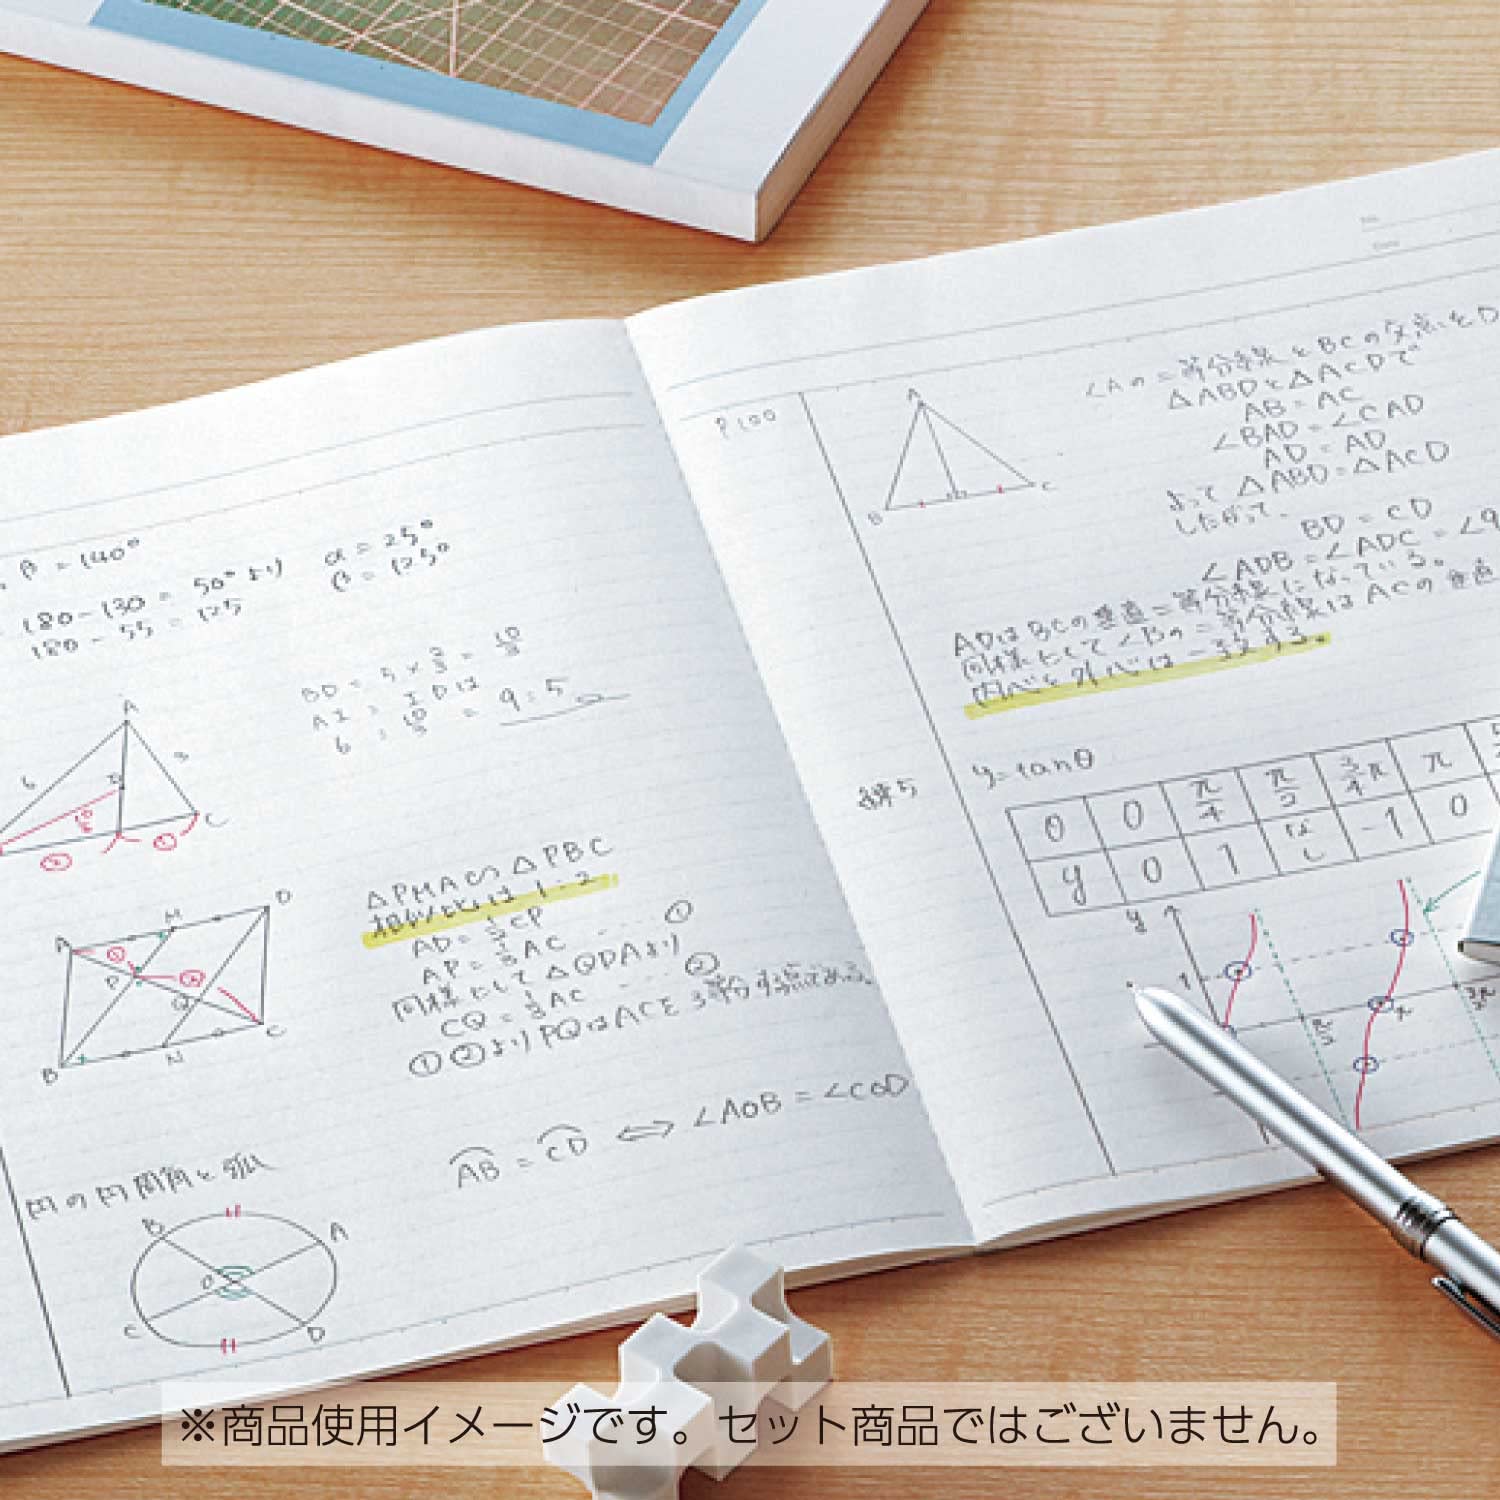 β = 140°
180 - 130 = 50° より
180 - 55 = 125
α = 25°
β = 125°
BD = 5 × 2/3 = 10/3
AI : IDは
6 : 10/3 = 9:5
A
6
3
C
②
①
△PMA∽△PBC
相似比は 1:2
AP = 1/2 CP
AP = 1/3 AC …… ①
同様にして △QDAより
CQ = 1/3 AC …… ②
①②より PQはACを3等分する点である。
A
M
D
①
P
②
Q
B
N
C
円の円周角と弧
AB = CD ⇔ ∠AOB = ∠COD
B
A
O
C
D
No.
Date
P100
A
B
D
C
∠Aの二等分線とBCの交点をD
△ABDと△ACDで
AB = AC
∠BAD = ∠CAD
AD = AD
よって △ABD = △ACD
したがって、
BD = CD
∠ADB = ∠ADC = ∠9
ADはBCの垂直二等分線になっている。
同様にして ∠Bの二等分線はACの垂直
内心と外心は一致する。
y = tanθ
θ 0 π/4 π/2 3/4π π
y 0 1 なし -1 0
y
1
π/2
π
3/2π
※商品使用イメージです。セット商品ではございません。